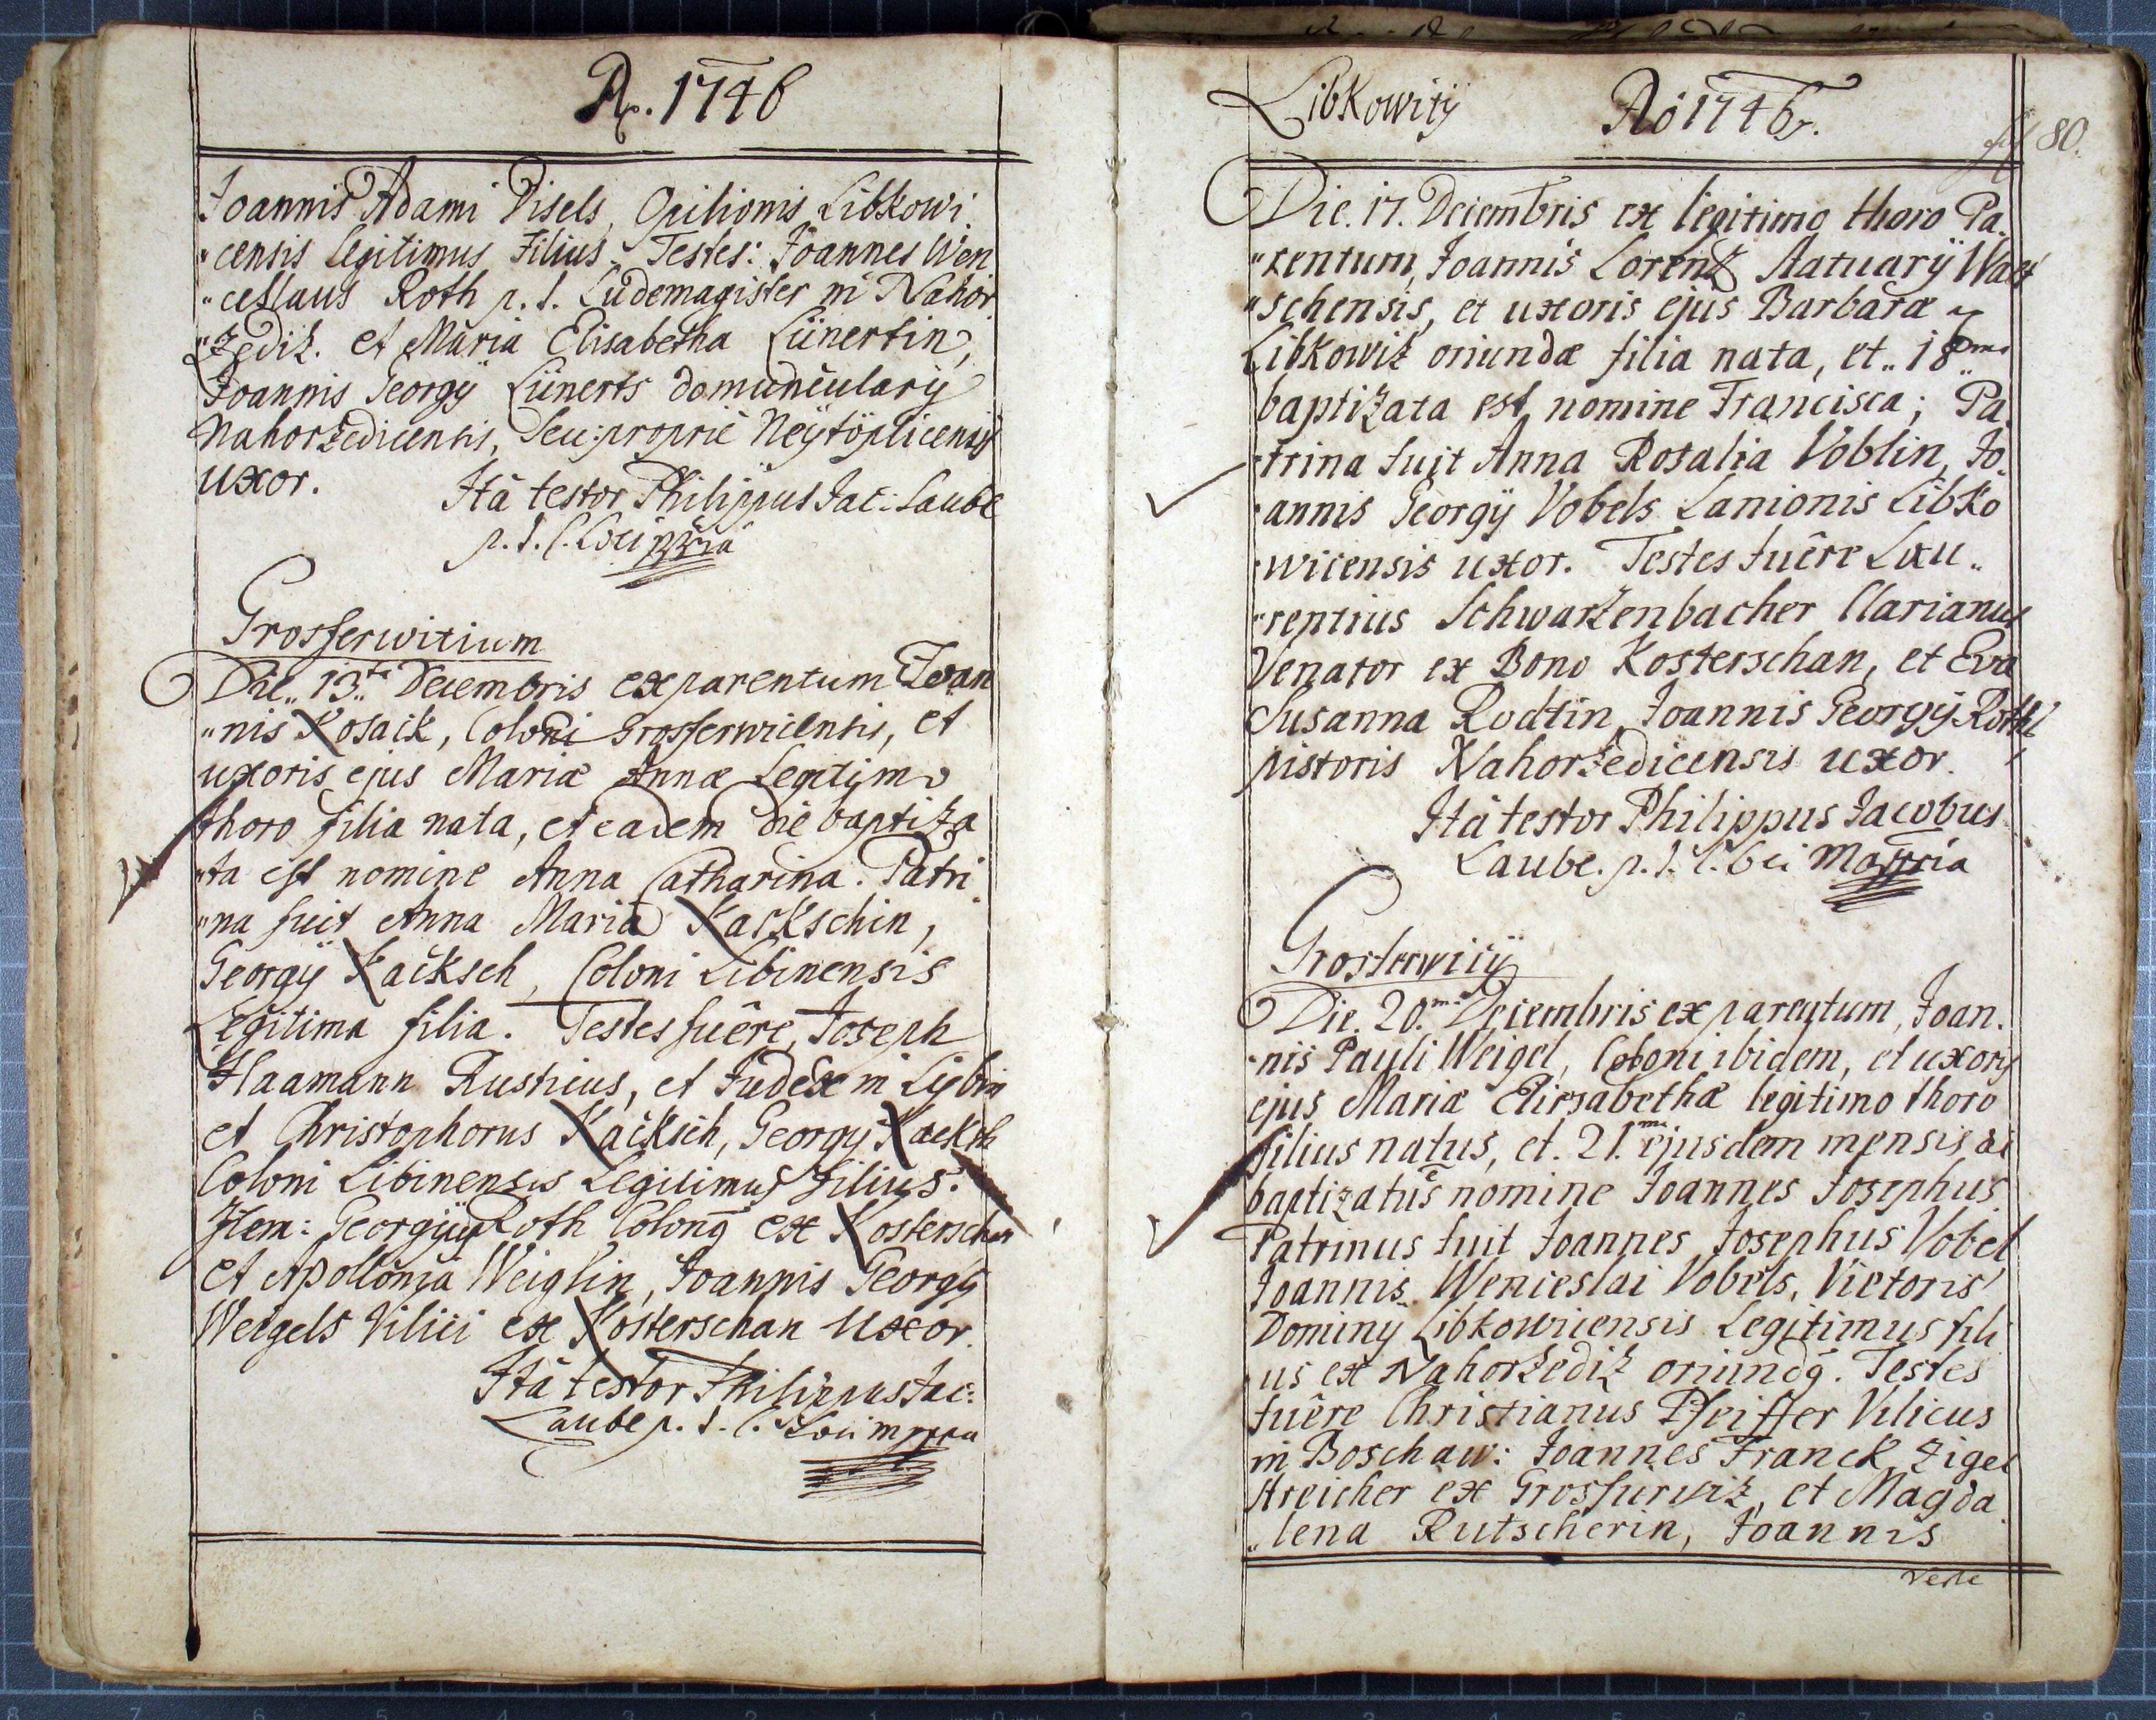 A. 1746
Joannis Adami Pisels, Opilionis Libkowi
"censis legitimus Filius. Testes: Joannes Wen
"ceslaus Roth p. t. Ludemagister in Nahor
"zediz. et Maria Elisabetha Lünertin,
Joannis Georgÿ Lünerts domuncularÿ
Nahorzedicensis, seu proprie Neÿtöplicensis
uxor.
Ità testor Philippus Jac: Laube
p. t. C. Loci mppria
Grosserwitium
Die 13.ta Decembris ex parentum Joan
"nis Kosack, Coloni Grosserwicensis, et
uxoris ejus Mariæ Annæ Legitimo
thoro filia nata, et eadem die baptiza
"ta est nomine Anna Catharina. Patri
"na fuit Anna Maria Kackschin,
Georgÿ Kacksch, Coloni Libinensis
Legitima filia. Testes fuêre, Joseph
Haamann Rusticus, et Judex in Lybin
et Christophorus Kacksch, Georgÿ Kacksch
Coloni Libinensis Legitimus filius.
Item: Georgÿ Roth Colonq ex Kosterschan
et Apollonia Weiglin, Joannis Georgÿ
Weigels Vilici ex Kosterschan Uxor.
Ità testor Philippus Jac:
Laube p. t. C. Loci mppria
Libkowitÿ Aô 1746.
80.
Die. 17. Decembris ex legitimo thoro Pa
"rentum, Joannis Lorenz Aatuarÿ Walt
"schensis, et uxoris ejus Barbaræ
Libkowiz oriundæ filia nata, et 18
baptizata est nomine Francisca; Pa
"trina fuit Anna Rosalia Voblin, Jo
"annis Georgÿ Vobels Lanionis Libko
"wicensis uxor. Testes fuêre Lau
"rentius Schwarzenbacher Clarianus
Venator ex Bono Kosterschan, et Eva
Susanna Rodtin, Joannis Georgÿ Roth
pistoris Nahorzedicensis uxor.
Ità testor Philippus Jacobus
Laube. p. t. C. Loci Mappria
Grosserwicÿ
Die. 20.ma Decembris ex parentum, Joan
"nis Pauli Weigel, Coloni ibidem, et uxoris
ejus Mariæ Elisabethæ legitimo thoro
filius natus, et. 21.ma ejusdem mensis
baptizatus ē nomine Joannes Josephus
Patrinus fuit Joannes Josephus Vobel
Joannis Wenceslai Vobels, Vietoris
Dominÿ Libkowicensis Legitimus fili
us ex Nahorzediz oriundq. Testes
fuêre Christianus Pfeiffer Vilicus
in Boschaw: Joannes Franck Zigel
streicher ex Grosserwiz, et Magda
"lena Rutscherin, Joannis